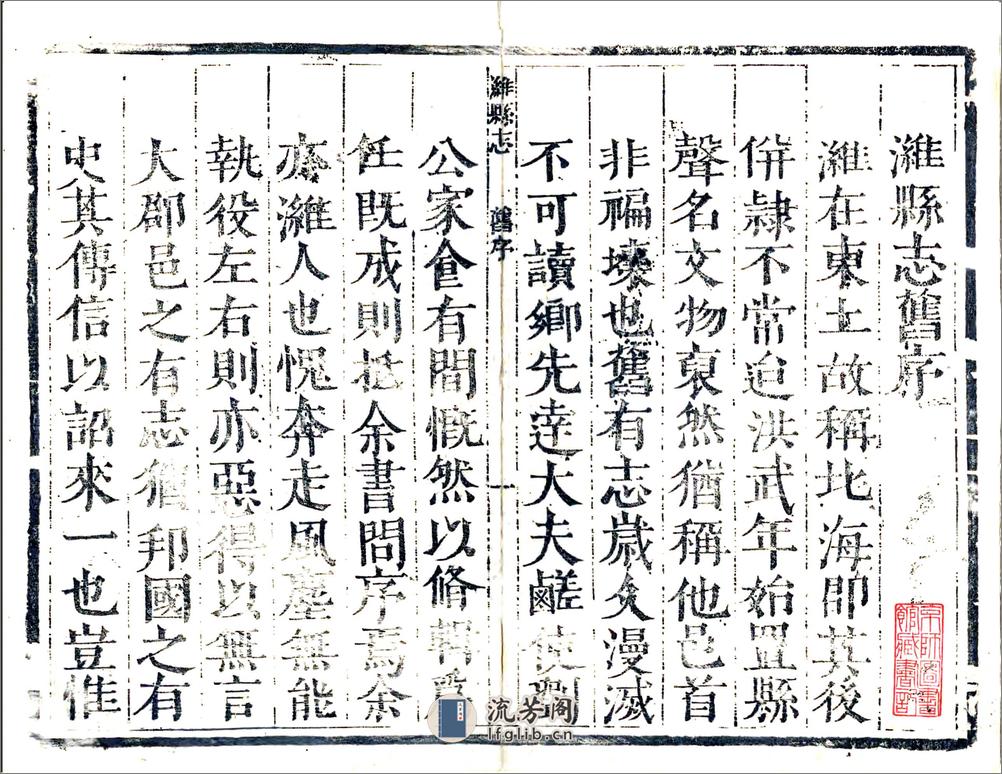 濰縣志舊序
濰在東土故稱北海郡其後
併隷不常迨洪武年始置縣
聲名文物裒然猶稱他邑首
非褊壤也舊有志歲久漫滅
不可讀鄉先達大夫鹺使劉
濰縣志 舊序 一
公家食有間慨然以脩輯
任既成則抵余書問序焉余
亦濰人也愧奔走風塵無能
執役左右則亦惡得以無言
夫郡邑之有志猶邦國之有
史其傳信以詔來一也豈惟
京師圖書館藏書記
流芳阁
lfglib.cn